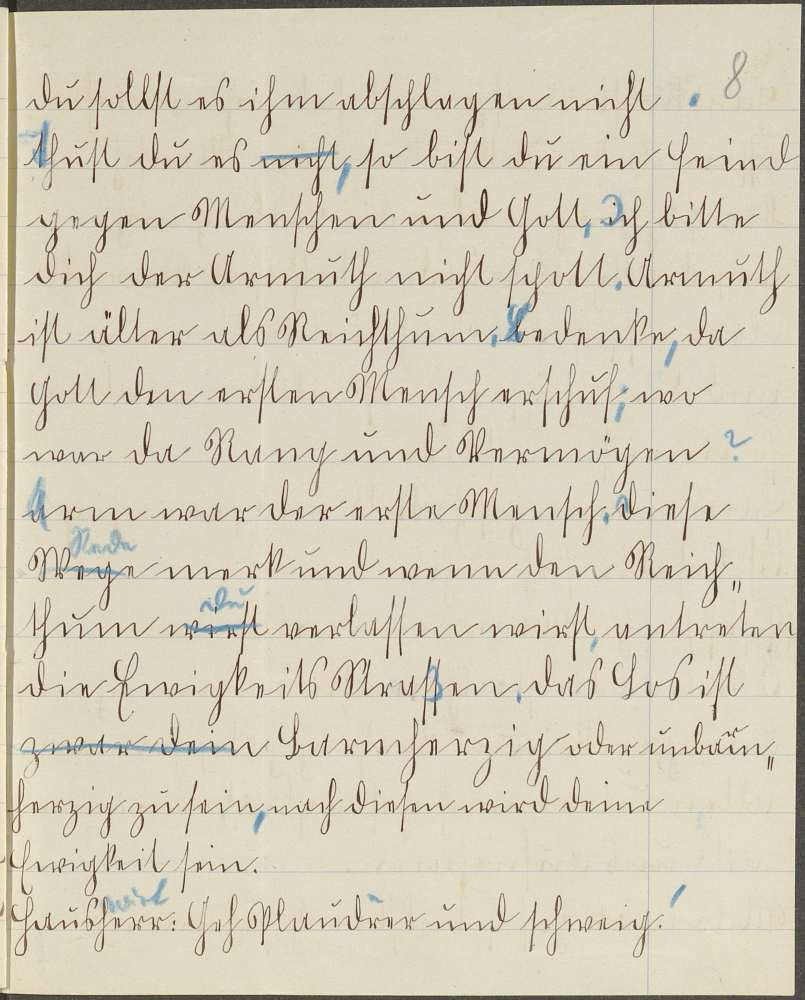 du sollst es ihm abschlagen nicht. 8
thust du es nicht, so bist du ein Feind
gegen Menschen und Gott, ich bitte
dich der Armuth nicht spott. Armuth
ist älter als Reichthum, bedenke, da
Gott den ersten Mensch erschuf; wo
war da Rang und Vermögen?
arm war der erste Mensch. diese
Rede
Wege merk und wenn den Reich„
du
thum wirst verlassen wirst, antreten
die Ewigkeits Straßen, das Los ist
zwar dein Barmherzig oder unbarm„
herzig zu sein, nach diesen wird deine
Ewigkeit sein.
wirt
Hausherr: Geh Plaudrer und schweig!